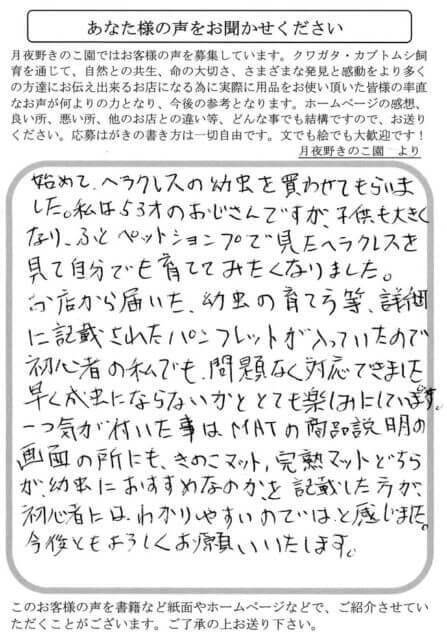 あなた様の声をお聞かせください
月夜野きのこ園ではお客様の声を募集しています。クワガタ・カブトムシ飼
育を通じて、自然との共生、命の大切さ、さまざまな発見と感動をより多く
の方達にお伝え出来るお店になる為に実際に用品をお使い頂いた皆様の率直
なお声が何よりの力となり、今後の参考となります。ホームページの感想、
良い所、悪い所、他のお店との違い等、どんな事でも結構ですので、お送り
ください。応募はがきの書き方は一切自由です。文でも絵でも大歓迎です！
月夜野きのこ園　より
始めて、ヘラクレスの幼虫を買わせてもらいま
した。私は53才のおじさんですが、子供も大きく
なり、ふと ペットショップで見たヘラクレスを
見て自分でも育ててみたくなりました。
お店から届いた、幼虫の育て方等、詳細
に記載されたパンフレットが入っていたので
初心者の私でも、問題なく対応できました。
早く成虫にならないかととても楽しみにしています。
一つ気が付いた事は MATの商品説明の
画面の所にも、きのこマット,完熟マットどちら
が、幼虫におすすめなのか、を記載した方が、
初心者には、わかりやすいのでは、と感じました。
今後ともよろしくお願いいたします。
このお客様の声を書籍など紙面やホームページなどで、ご紹介させてい
ただくことがございます。ご了承の上お送り下さい。